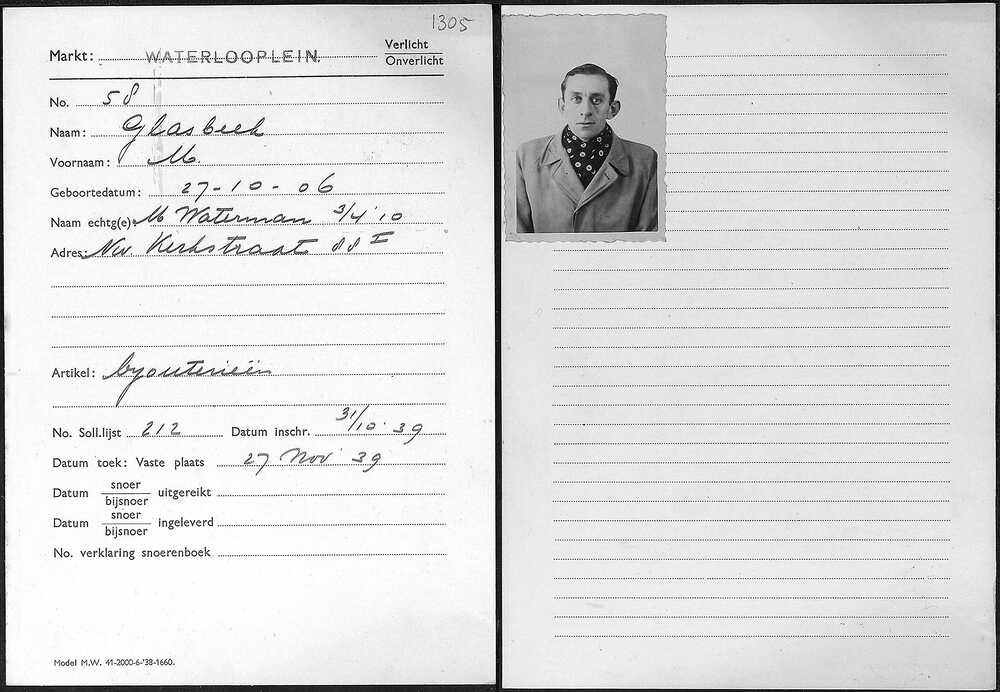 1305
Markt: WATERLOOPLEIN. Verlicht
Onverlicht
No. 58
Naam: Glasbeek
Voornaam: M.
Geboortedatum: 27-10-06
Naam echtg(e): M Waterman 3/4 '10
Adres: Nw Kerkstraat 88 I
Artikel: byouterieën
No. Soll.lijst 212 Datum inschr. 31/10 39
Datum toek: Vaste plaats 27 Nov 39
Datum snoer
bijsnoer uitgereikt
Datum snoer
bijsnoer ingeleverd
No. verklaring snoerenboek
Model M.W. 41-2000-6-'38-1660.